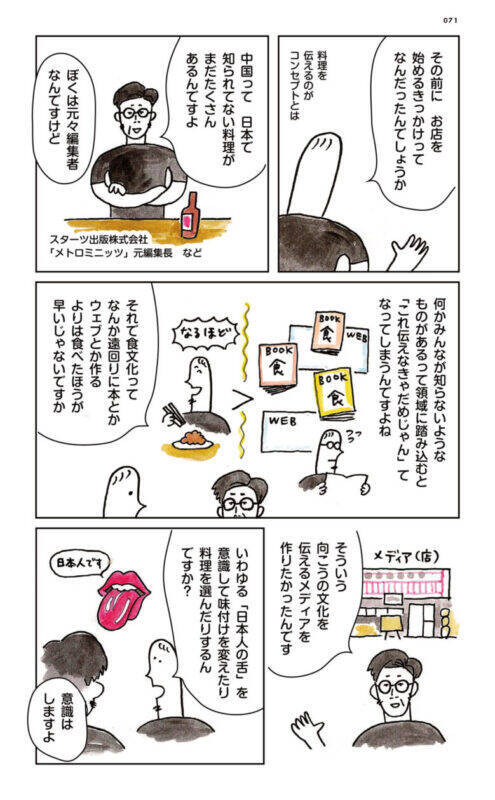 071
その前に お店を
始めるきっかけって
なんだったんでしょうか
料理を
伝えるのが
コンセプトとは
中国って 日本で
知られてない料理が
まだたくさん
あるんですよ
ぼくは元々編集者
なんですけど
スターツ出版株式会社
「メトロミニッツ」元編集長 など
何かみんなが知らないような
ものがあるって領域に踏み込むと
「これ伝えなきゃだめじゃん」て
なってしまうんですよね
BOOK
食
WEB
BOOK
食
BOOK
食
WEB
なるほど
>
それで食文化って
なんか遠回りに本とか
ウェブとか作る
よりは食べたほうが
早いじゃないですか
メディア(店)
そういう
向こうの文化を
伝えるメディアを
作りたかったんです
いわゆる「日本人の舌」を
意識して味付けを変えたり
料理を選んだりするん
ですか?
日本人です
意識は
しますよ